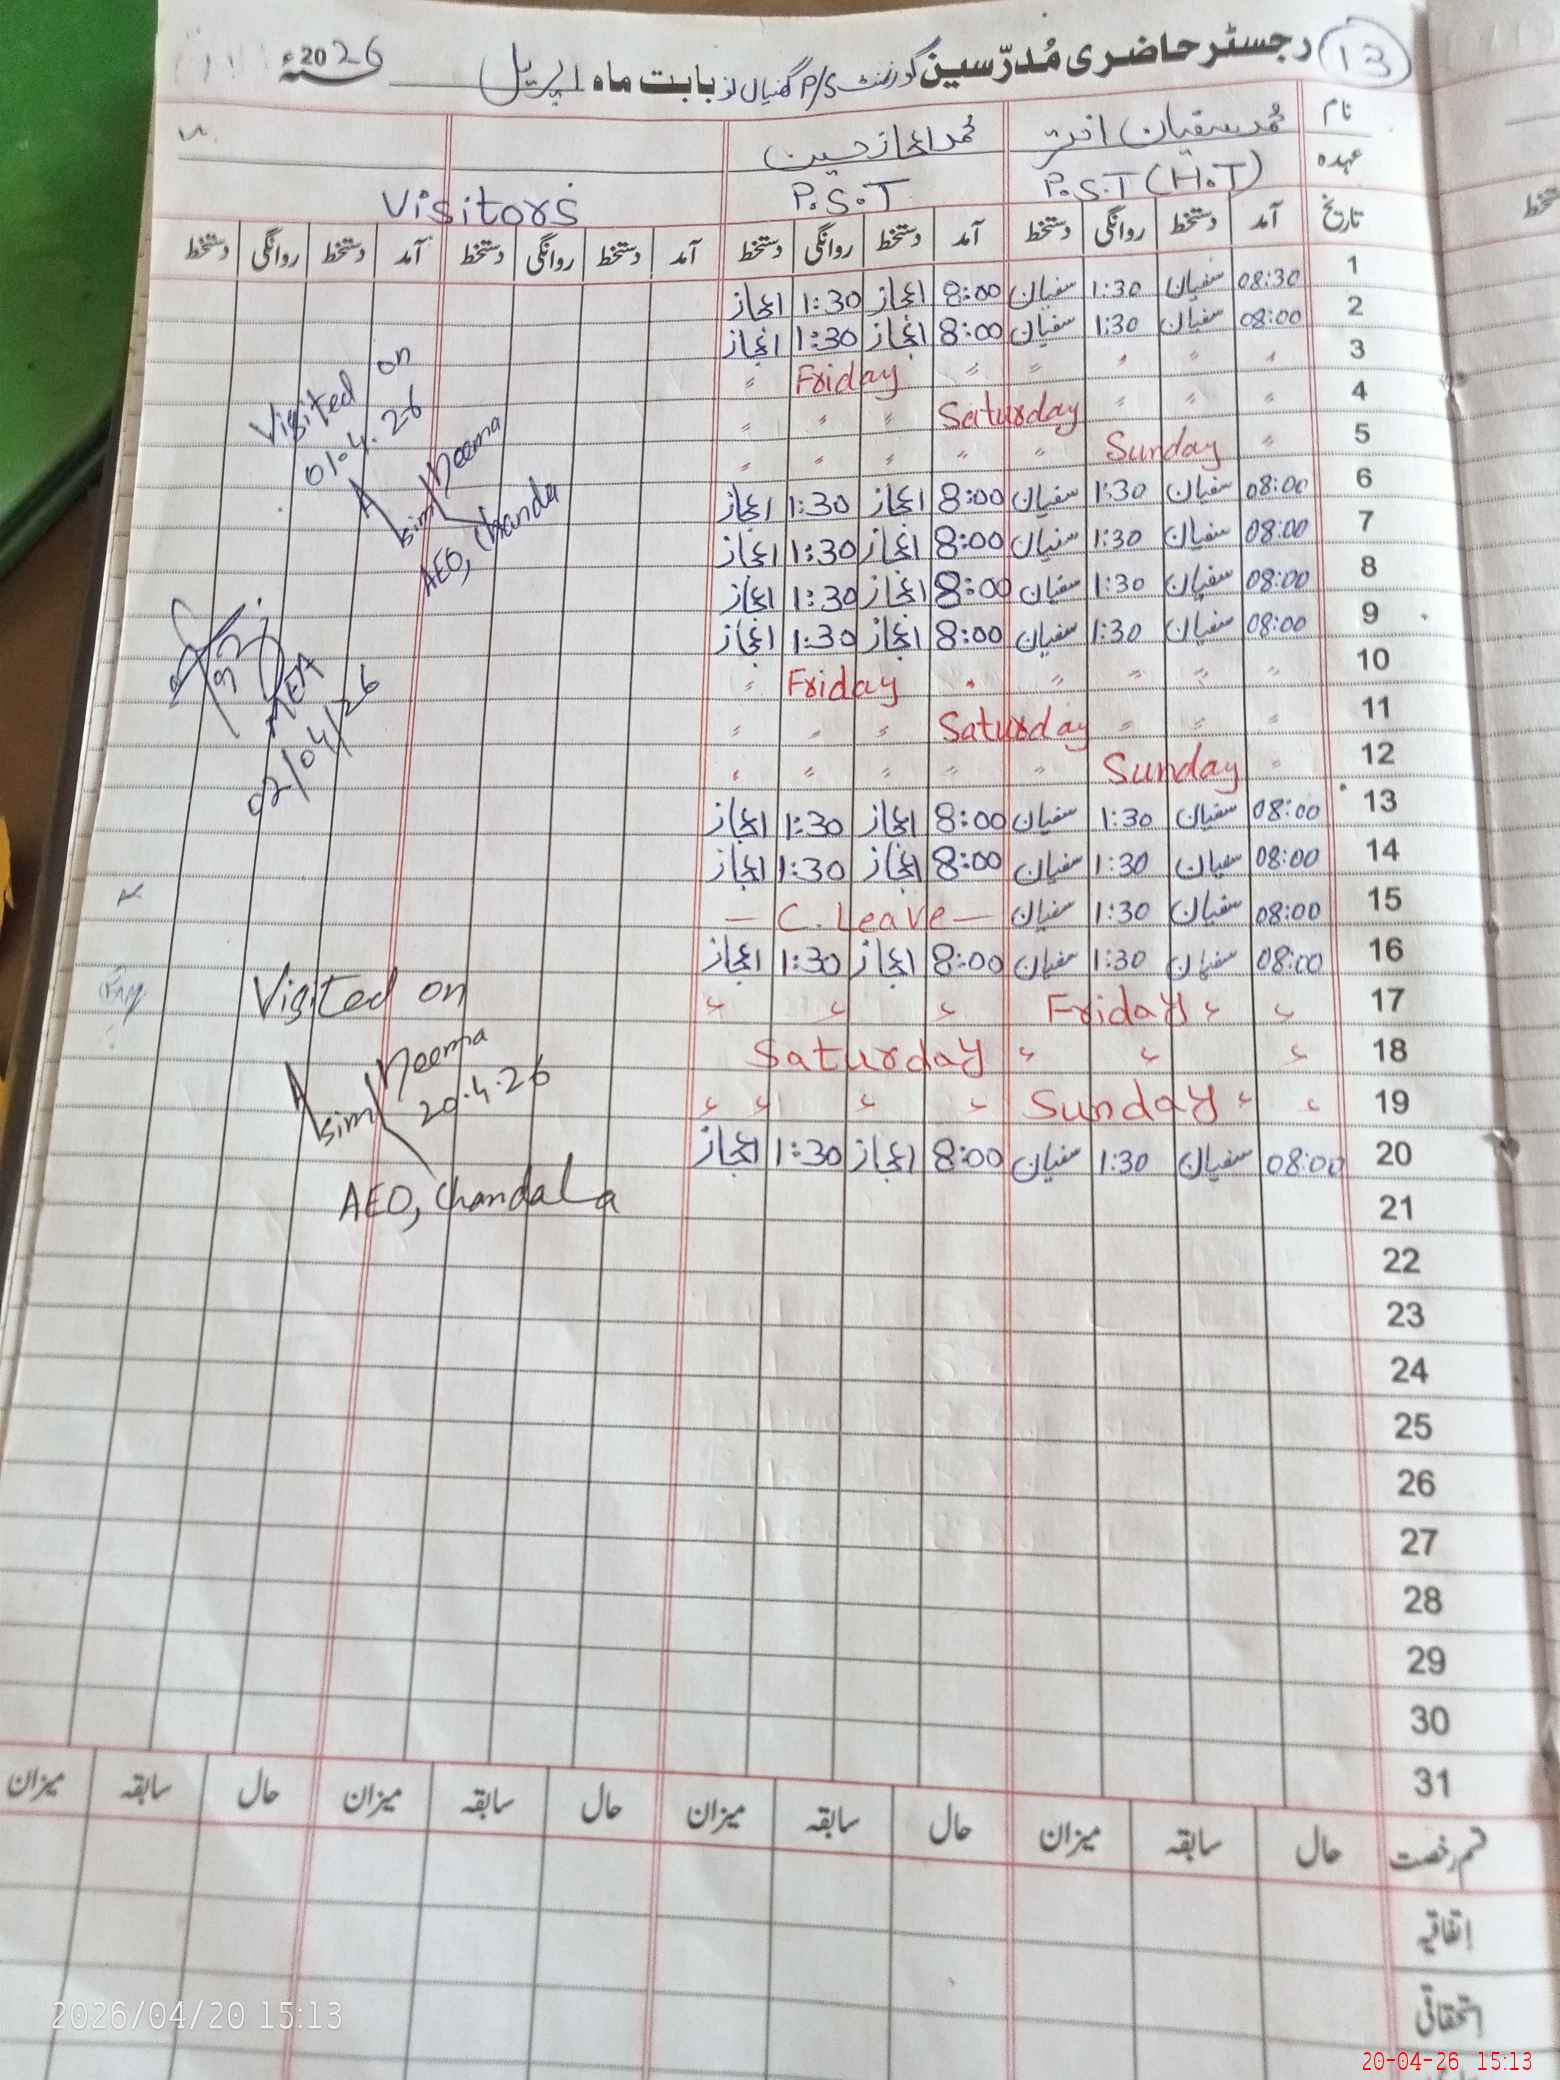 13 رجسٹر حاضری مُدرّسین گورنمنٹ P/S گنیال نز بابت ماہ اپریل 2026ء
نام محمد سفیان اختر محمد اعجاز حسین
عہدہ P.S.T (H.T) P.S.T Visitors
تاریخ آمد دستخط روانگی دستخط آمد دستخط روانگی دستخط آمد دستخط روانگی دستخط آمد دستخط روانگی دستخط
1 08:30 سفیان 1:30 سفیان 8:00 اعجاز 1:30 اعجاز
2 08:00 سفیان 1:30 سفیان 8:00 اعجاز 1:30 اعجاز
3 〃 〃 〃 〃 〃 Friday 〃
4 〃 〃 〃 Saturday 〃 〃 〃
5 〃 Sunday 〃 〃 〃 〃 〃
6 08:00 سفیان 1:30 سفیان 8:00 اعجاز 1:30 اعجاز
7 08:00 سفیان 1:30 سفیان 8:00 اعجاز 1:30 اعجاز
8 08:00 سفیان 1:30 سفیان 8:00 اعجاز 1:30 اعجاز
9 08:00 سفیان 1:30 سفیان 8:00 اعجاز 1:30 اعجاز
10 〃 〃 〃 〃 〃 Friday 〃
11 〃 〃 〃 Saturday 〃 〃 〃
12 〃 Sunday 〃 〃 〃 〃 〃
13 08:00 سفیان 1:30 سفیان 8:00 اعجاز 1:30 اعجاز
14 08:00 سفیان 1:30 سفیان 8:00 اعجاز 1:30 اعجاز
15 08:00 سفیان 1:30 سفیان — C. Leave —
16 08:00 سفیان 1:30 سفیان 8:00 اعجاز 1:30 اعجاز
17 〃 〃 Friday 〃 〃 〃
18 〃 〃 〃 Saturday
19 〃 〃 Sunday 〃 〃 〃 〃
20 08:00 سفیان 1:30 سفیان 8:00 اعجاز 1:30 اعجاز
21
22
23
24
25
26
27
28
29
30
31
Visited on
01.4.26
Asim Neema
AEO, Chandala
MEA
02/04/26
Visited on
Asim Neema
20.4.26
AEO, Chandala
قسم رخصت حال سابقہ میزان حال سابقہ میزان حال سابقہ میزان حال سابقہ میزان
اتفاقیہ
استحقاقی
2026/04/20 15:13
20-04-26 15:13